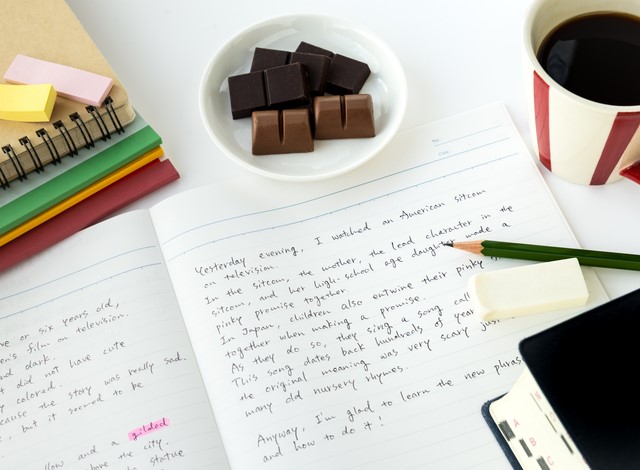 ve or six years old,
en's film on television.
nd dark.
t did not have cute
y colored.
ecause the story was really sad.
, but it seemed to be
gilded
llow and a
bore the city.
he statue
Date
Yesterday evening, I watched an American sitcom
on television.
In the sitcom, the mother, the lead character in the
sitcom, and her high-school age daughter made a
pinky promise together.
In Japan, children also entwine their pinky
together when making a promise.
As they do so, they sing a song call
This song dates back hundreds of year
the original meaning was very scary jus
many old nursery rhymes.
Anyway, I'm glad to learn the new phras
and how to do it!
A
B
C